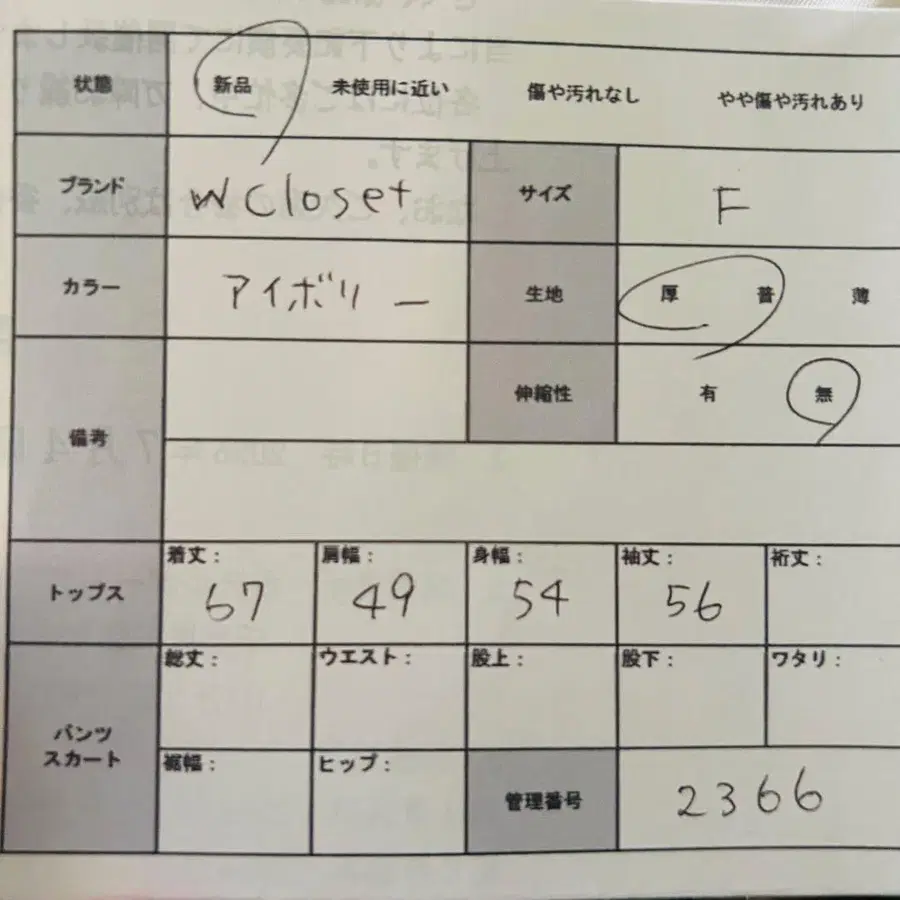 状態 新品 未使用に近い 傷や汚れなし やや傷や汚れあり
ブランド W Closet サイズ F
カラー アイボリー 生地 厚 普 薄
伸縮性 有 無
備考
トップス 着丈: 67 肩幅: 49 身幅: 54 袖丈: 56 裄丈:
パンツ スカート 総丈: ウエスト: 股上: 股下: ワタリ:
裾幅: ヒップ: 管理番号 2366